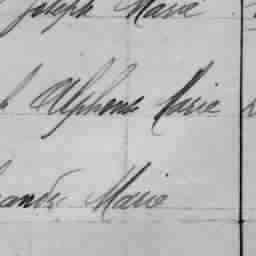 Joseph Marie
Alphonse Marie
andre Marie